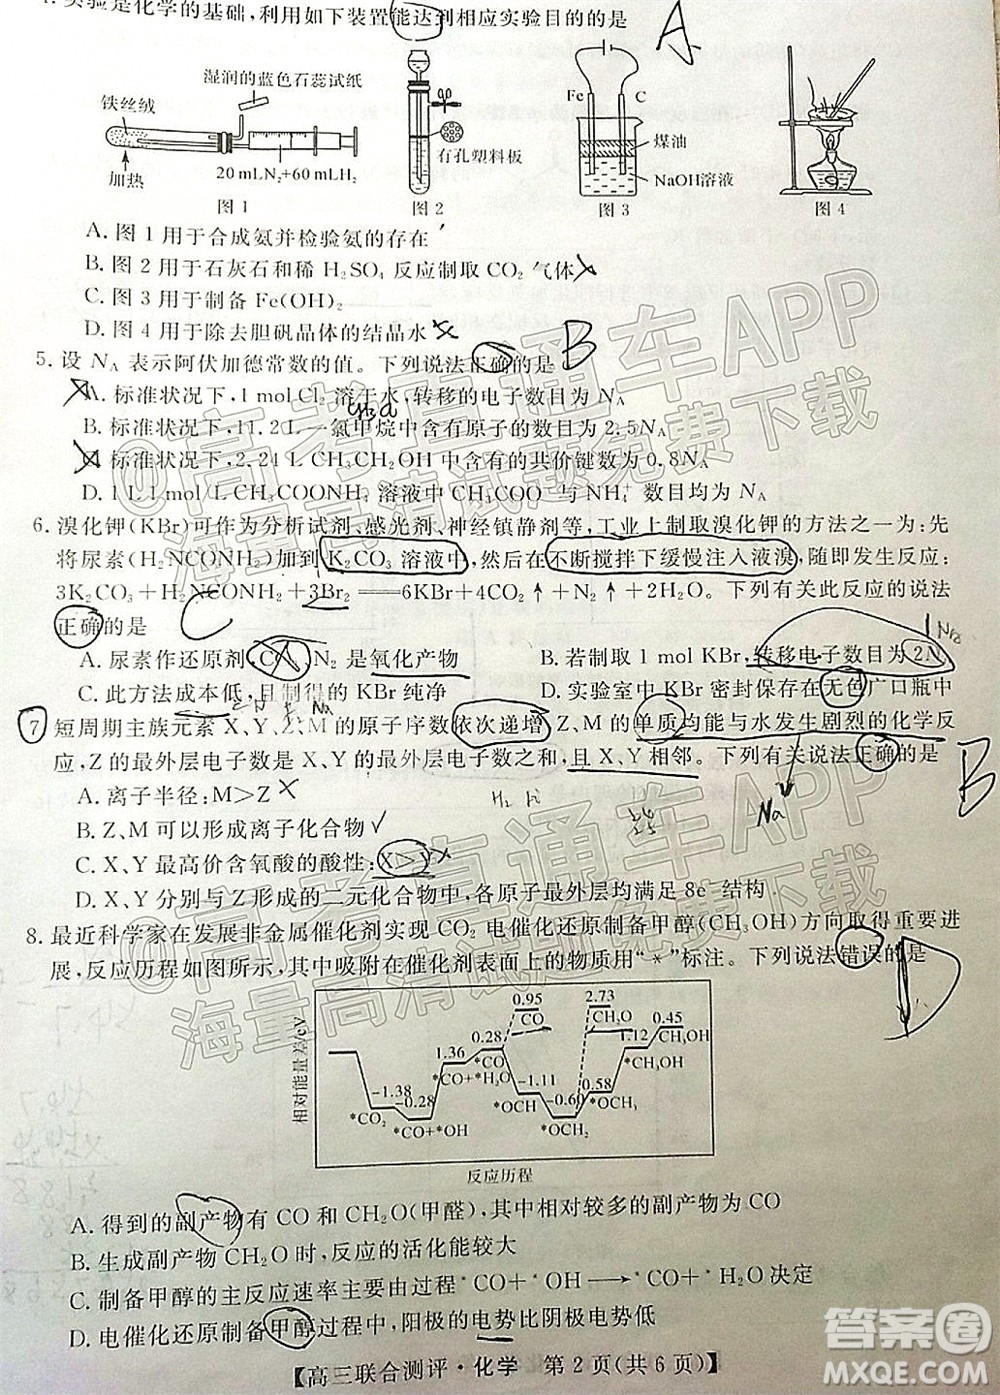 4. 实验是化学的基础，利用如下装置能达到相应实验目的的是
A
湿润的蓝色石蕊试纸
铁丝绒
加热
20 mLN₂+60 mLH₂
有孔塑料板
Fe C
煤油
NaOH溶液
图 1
图 2
图 3
图 4
A. 图 1 用于合成氨并检验氨的存在
B. 图 2 用于石灰石和稀 H₂SO₄ 反应制取 CO₂ 气体
C. 图 3 用于制备 Fe(OH)₂
D. 图 4 用于除去胆矾晶体的结晶水
5. 设 Nᴀ 表示阿伏加德常数的值。下列说法正确的是
B
A. 标准状况下，1 mol Cl₂ 溶于水，转移的电子数目为 Nᴀ
B. 标准状况下，11.2 L 一氯甲烷中含有原子的数目为 2.5Nᴀ
C. 标准状况下，2.24 L CH₃CH₂OH 中含有的共价键数为 0.8Nᴀ
D. 1 L 1 mol/L CH₃COONH₄ 溶液中 CH₃COO⁻与 NH₄⁺ 数目为 Nᴀ
6. 溴化钾(KBr)可作为分析试剂、感光剂、神经镇静剂等，工业上制取溴化钾的方法之一为：先
将尿素(H₂NCONH₂)加到 K₂CO₃ 溶液中，然后在不断搅拌下缓慢注入液溴，随即发生反应：
3K₂CO₃+H₂NCONH₂+3Br₂══6KBr+4CO₂↑+N₂↑+2H₂O。下列有关此反应的说法
正确的是
C
A. 尿素作还原剂，CO₂、N₂ 是氧化产物
B. 若制取 1 mol KBr，转移电子数目为 2Nᴀ
C. 此方法成本低，且制得的 KBr 纯净
D. 实验室中 KBr 密封保存在无色广口瓶中
7. 短周期主族元素 X、Y、Z、M 的原子序数依次递增，Z、M 的单质均能与水发生剧烈的化学反
应，Z 的最外层电子数是 X、Y、M 的最外层电子数之和，且 X、Y 相邻。下列有关说法正确的是
B
A. 离子半径：M>Z
Na
B. Z、M 可以形成离子化合物
C. X、Y 最高价含氧酸的酸性：X>Y
D. X、Y 分别与 Z 形成的二元化合物中，各原子最外层均满足 8e⁻ 结构
8. 最近科学家在发展非金属催化剂实现 CO₂ 电催化还原制备甲醇(CH₃OH)方向取得重要进
展，反应历程如图所示，其中吸附在催化剂表面上的物质用“*”标注。下列说法错误的是
D
相对能量差/eV
0.95
CO
2.73
CH₂O
0.45
CH₃OH
1.36
0.28
*CO
1.12
*CH₃OH
*CO+*H₂O
-1.38
*CO₂
-0.28
*CO+*OH
-1.11
*OCH
-0.60
*OCH₂
0.58
*OCH₃
反应历程
A. 得到的副产物有 CO 和 CH₂O(甲醛)，其中相对较多的副产物为 CO
B. 生成副产物 CH₂O 时，反应的活化能较大
C. 制备甲醇的主反应速率主要由过程*CO+*OH⟶*CO+*H₂O 决定
D. 电催化还原制备甲醇过程中，阳极的电势比阴极电势低
【高三联合测评·化学 第 2 页(共 6 页)】
@高考直通车APP
海量高清试题免费下载
@高考直通车APP
海量高清试题免费下载
答案圈
MXQE.COM